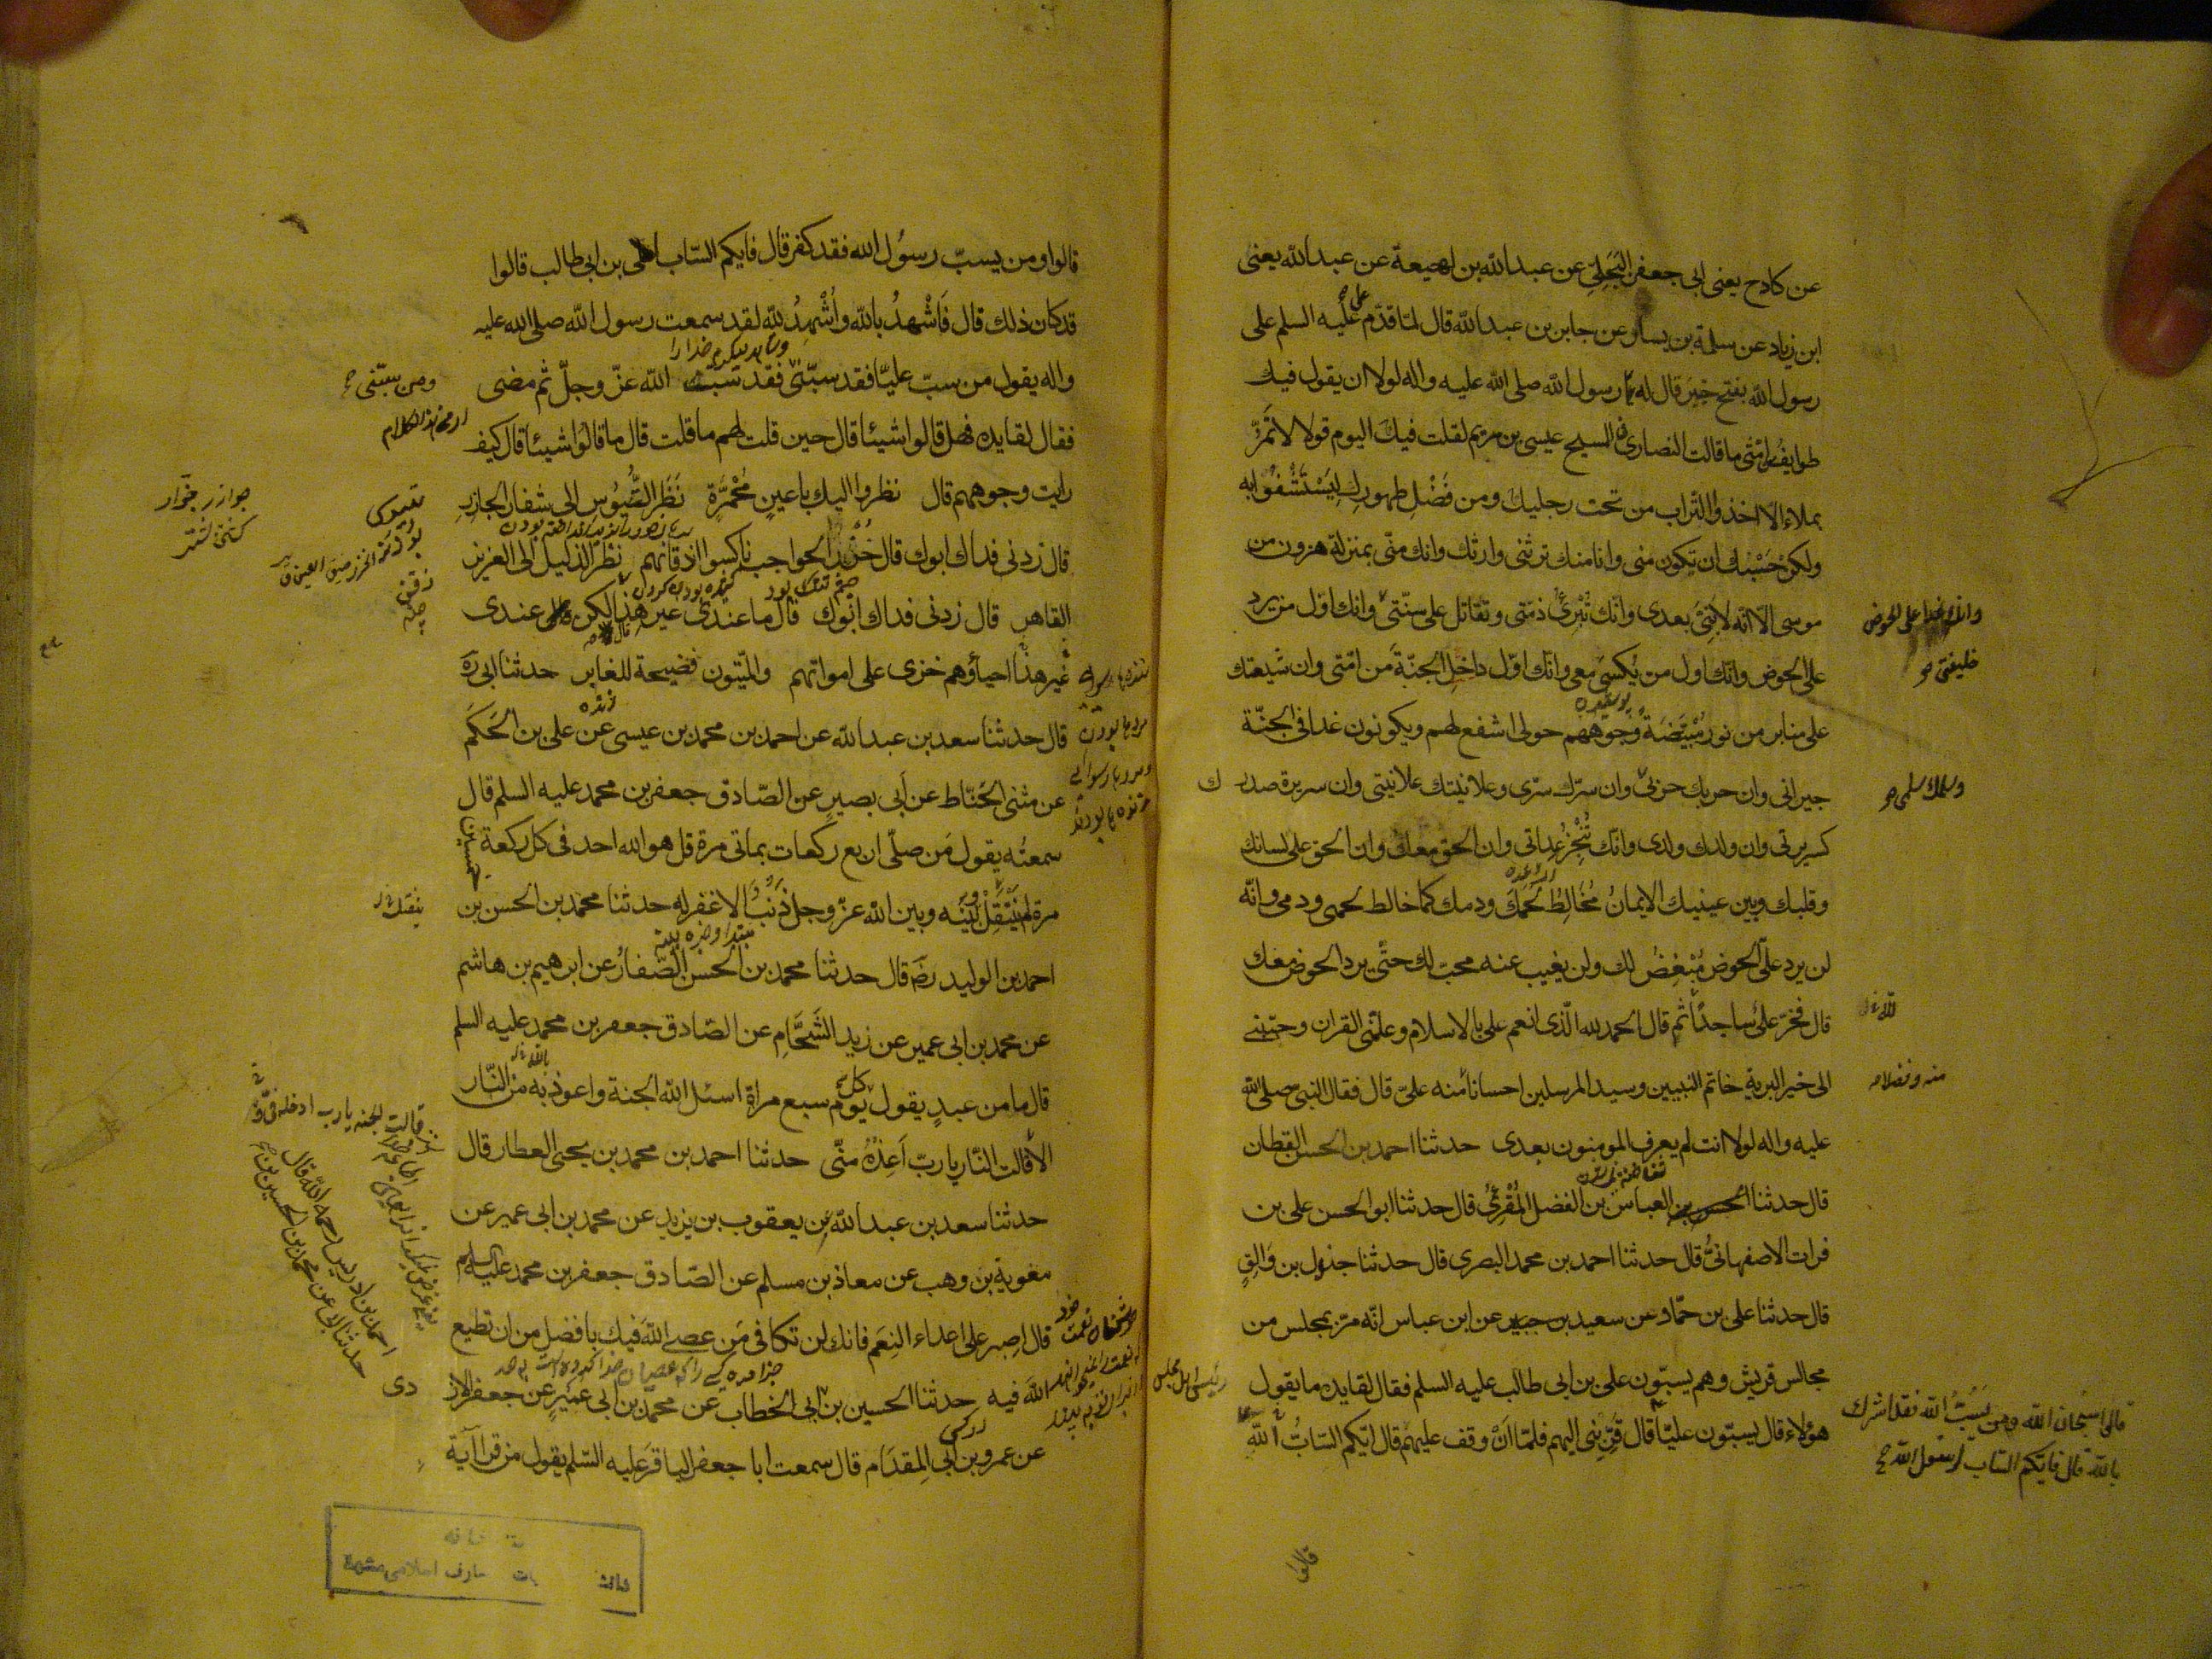 عن كادح يعنى ابى جعفر البَجَلِيّ عن عبد الله بن لهيعة عن عبد الله يعنى
ابن زياد عن سلمة بن يسار عن جابر بن عبد الله قال لمّا قدّم علىّ عليه السلم على
رسول الله بفتح خيبر قال له رسول الله صلى الله عليه واله لولا ان يقول فيك
طوايف امّتى ما قالت النصارى فى المسيح عيسى بن مريم لقلت فيك اليوم قولا لا تَمُرّ
بملاء الا اخذوا التّراب من تحت رجليك ومن فَضْلِ طهورك لِيَسْتَشْفُوا به
ولكن حَسْبُك ان تكون منى وانا منك ترثنى وارثك وانك منّى بمنزلة هرون من
موسى الّا انّه لا نَبِىَّ بعدى وانّك تُبْرِئُ ذمّتى وتقاتل على سنّتى وانك
وانك غدا على الحوض
خليفتى
على الحوض وانك اول من يُكسىٰ معى وانك اوّل داخل الجنّة من امّتى وان شيعتك
على منابر من نور مُبْيَضّةً وجوههم حولى اشفع لهم ويكونون غدا فى الجنّة
جيرانى وان حربك حربى وان سرّك سرّى وعلانيتك علانيتى وان سريرة صدرك
وسلمك سلمى
كسريرتى وان ولدك ولدى وانّك تُنْجِزُ عِداتى وان الحق معك وان الحق على لسانك
وقلبك وبين عينيك الايمانُ مُخَالِطٌ لَحْمَكَ ودمك كما خالط لحمى ودمى وانّه
لن يرد علىّ الحوض مُبْغِضٌ لك ولن يغيب عنه محبّ لك حتّى يرد الحوض معك
قال فخرّ علىّ ساجدًا ثم قال الحمد لله الّذى انعم علىّ بالاسلام وعلّمنى القران وحبّبنى
الى خير البرية خاتم النبيين وسيد المرسلين احسانا منه علىّ قال فقال النبى صلى الله
منه وفضلا
عليه واله لولا انت لم يعرف المومنون بعدى حدثنا احمد بن الحسن القطان
قال حدثنا العباس بن الفضل المُقْرِئُ قال حدثنا ابو الحسن على بن
فرات الاصفهانىُّ قال حدثنا احمد بن محمد البصرى قال حدثنا جندل بن وَالِقٍ
قال حدثنا على بن حمّاد عن سعيد بن جبير عن ابن عباس انّه مرّ بمجلس من
مجالس قريش وهم يسبّون على بن ابى طالب عليه السلم فقال لقايده ما يقول
هؤلاء قال يسبّون عليّا قال قَرِّبْنى اليهم فلمّا اَنْ وقف عليهم قال ايّكم السّابُّ اللهَ
قالوا سُبحان الله ومن يَسُبُّ الله فقد اشرك
بالله قال فايّكم السّاب رسول الله
قالوا
قالوا ومن يسبّ رسُول الله فقد كفر قال فايكم السّاب على بن ابى طالب قالوا
قد كان ذلك قال فَاَشْهدُ بالله واُشْهِدُ لله لقد سمعت رسول الله صلى الله عليه
واله يقول من سبّ عليّا فقد سبّنى فقد سبّ الله عزّ وجلّ ثم مضى
ومن سبّنى
فقال لقايده فهل قالوا شيئا قال حين قلت لهم ما قلت قال ما قالوا شيئا قال كيف
رايت وجوههم قال نظروا اليك باعينٍ مُحْمَرَّةٍ نَظَر التُّيُوسِ الى شفار الجازِرِ
قال زدنى فداك ابوك قال خُزْر الحواجب ناكسوا اذقانهم نظر الذليل الى العزيز
القاهر قال زدنى فداك ابوك قال ما عندى غير هذا لكن عندى
غير هذا احياؤهم خزى على امواتهم والميّتون فضيحة للغابر حدثنا ابى ره
قال حدثنا سعد بن عبد الله عن احمد بن محمد بن عيسى عن على بن الحَكَم
عن مثنى الحنّاط عن اَبى بصير عن الصّادق جعفر بن محمد عليه السلم قال
سمعتُه يقول مَن صلّى اربع ركعات بماتى مرة قل هو الله احد فى كل ركعة
خمسين
مرة لم يَنْتَقِلْ وبينه وبين الله عزّ وجل ذَنْبٌ الا غفر له حدثنا محمد بن الحسن بن
احمد بن الوليد رضه قال حدثنا محمد بن الحسن الصّفارُ عن ابرهيم بن هاشم
عن محمد بن ابى عمير عن زيد الشَّحَّامِ عن الصّادق جعفر بن محمد عليه السلم
قال ما من عبدٍ يقول كلّ يوم سبع مرات اسئل الله الجنة واعوذ به من النّار
الّا قالت النّار يا ربّ اَعِذْهُ منّى حدثنا احمد بن محمد بن يحيى العطار قال
حدثنا سعد بن عبد الله عن يعقوب بن يزيد عن محمد بن ابى عمير عن
معوية بن وهب عن معاذ بن مسلم عن الصّادق جعفر بن محمد عليه السلم
قال اصبر على اعداء النِعَم فانك لن تكافى مَن عصى الله فيك بافضل من ان تطيع
الله فيه حدثنا الحسين بن ابى الخطاب عن محمد بن ابى عُمَيرٍ عن جعفر الازدى
احمد بن ادريس رحمه الله قال
حدثنا ابى عن محمد بن الحسين بن
عن عمرو بن ابى المِقدَام قال سمعت ابا جعفر الباقر عليه السّلم يقول من قرا آية